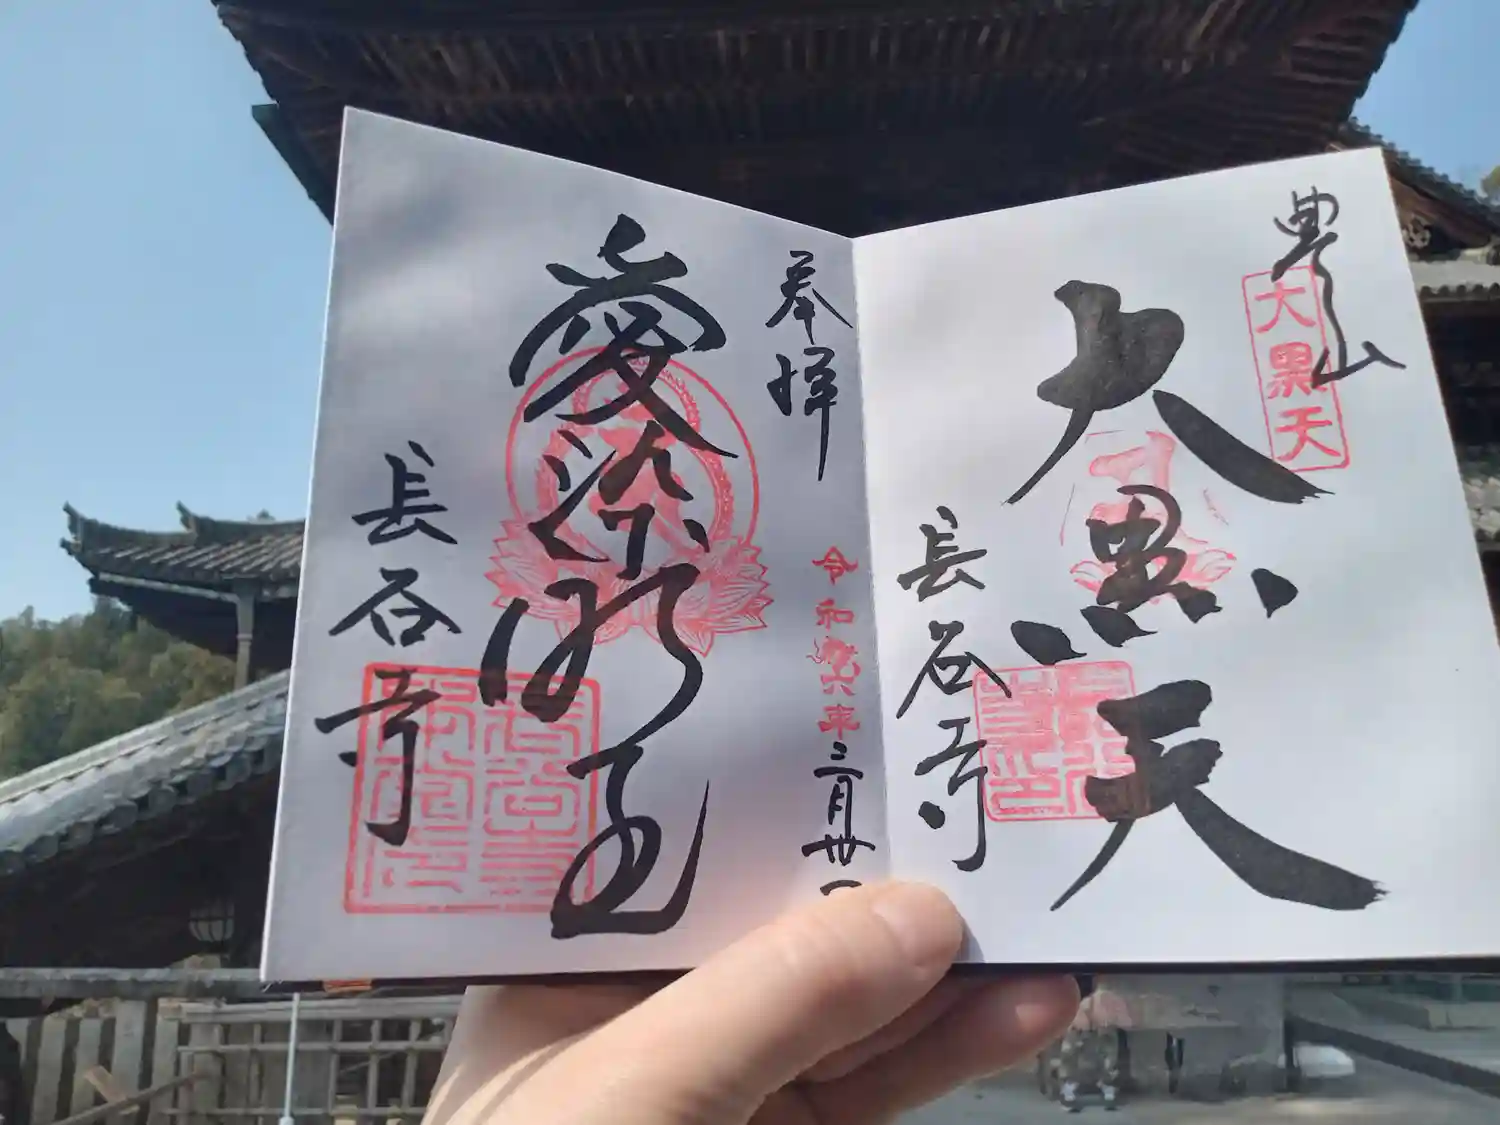 豊山
大黒天
大黒天
長谷寺
奉拝
令和六年三月卅一
愛染明王
長谷寺